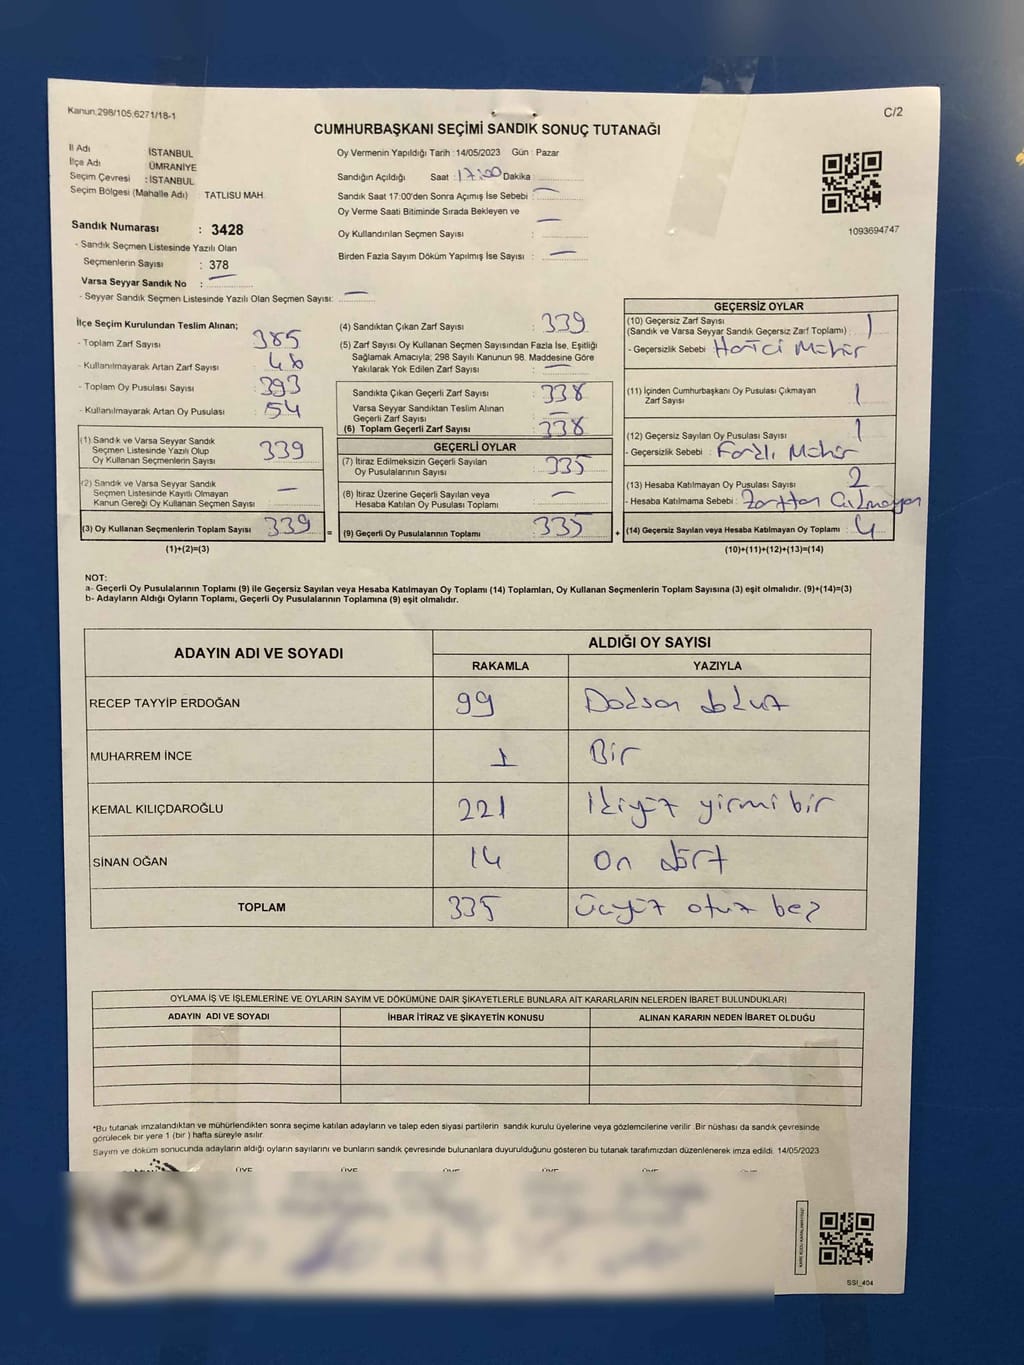 Kanun.298/105;6271/18-1
C/2
CUMHURBAŞKANI SEÇİMİ SANDIK SONUÇ TUTANAĞI
İl Adı İSTANBUL
İlçe Adı ÜMRANİYE
Seçim Çevresi : İSTANBUL
Seçim Bölgesi (Mahalle Adı) TATLISU MAH.
Oy Vermenin Yapıldığı Tarih :14/05/2023 Gün : Pazar
Sandığın Açıldığı Saat : 17:00 Dakika :
Sandık Saat 17:00'den Sonra Açımış İse Sebebi : —
Oy Verme Saati Bitiminde Sırada Bekleyen ve —
Oy Kullandırılan Seçmen Sayısı :
Birden Fazla Sayım Döküm Yapılmış İse Sayısı : —
1093694747
Sandık Numarası : 3428
- Sandık Seçmen Listesinde Yazılı Olan
Seçmenlerin Sayısı : 378
Varsa Seyyar Sandık No : —
- Seyyar Sandık Seçmen Listesinde Yazılı Olan Seçmen Sayısı: —
İlçe Seçim Kurulundan Teslim Alınan;
- Toplam Zarf Sayısı : 385
- Kullanılmayarak Artan Zarf Sayısı : 46
- Toplam Oy Pusulası Sayısı : 393
- Kullanılmayarak Artan Oy Pusulası : 54
(1) Sandık ve Varsa Seyyar Sandık
Seçmen Listesinde Yazılı Olup
Oy Kullanan Seçmenlerin Sayısı : 339
(2) Sandık ve Varsa Seyyar Sandık
Seçmen Listesinde Kayıtlı Olmayan
Kanun Gereği Oy Kullanan Seçmen Sayısı : —
(3) Oy Kullanan Seçmenlerin Toplam Sayısı : 339
(1)+(2)=(3)
(4) Sandıktan Çıkan Zarf Sayısı : 339
(5) Zarf Sayısı Oy Kullanan Seçmen Sayısından Fazla İse, Eşitliği
Sağlamak Amacıyla; 298 Sayılı Kanunun 98. Maddesine Göre
Yakılarak Yok Edilen Zarf Sayısı : —
Sandıkta Çıkan Geçerli Zarf Sayısı : 338
Varsa Seyyar Sandıktan Teslim Alınan
Geçerli Zarf Sayısı : —
(6) Toplam Geçerli Zarf Sayısı : 338
GEÇERLİ OYLAR
(7) İtiraz Edilmeksizin Geçerli Sayılan
Oy Pusulalarının Sayısı : 335
(8) İtiraz Üzerine Geçerli Sayılan veya
Hesaba Katılan Oy Pusulası Toplamı : —
= (9) Geçerli Oy Pusulalarının Toplamı : 335 +
GEÇERSİZ OYLAR
(10) Geçersiz Zarf Sayısı
(Sandık ve Varsa Seyyar Sandık Geçersiz Zarf Toplamı) : 1
- Geçersizlik Sebebi : Harici Mühür
(11) İçinden Cumhurbaşkanı Oy Pusulası Çıkmayan
Zarf Sayısı : 1
(12) Geçersiz Sayılan Oy Pusulası Sayısı : 1
- Geçersizlik Sebebi : Farklı Mühür
(13) Hesaba Katılmayan Oy Pusulası Sayısı : 2
- Hesaba Katılmama Sebebi : Zarftan Çıkmayan
(14) Geçersiz Sayılan veya Hesaba Katılmayan Oy Toplamı : 4
(10)+(11)+(12)+(13)=(14)
NOT:
a- Geçerli Oy Pusulalarının Toplamı (9) ile Geçersiz Sayılan veya Hesaba Katılmayan Oy Toplamı (14) Toplamları, Oy Kullanan Seçmenlerin Toplam Sayısına (3) eşit olmalıdır. (9)+(14)=(3)
b- Adayların Aldığı Oyların Toplamı, Geçerli Oy Pusulalarının Toplamına (9) eşit olmalıdır.
ADAYIN ADI VE SOYADI ALDIĞI OY SAYISI
RAKAMLA YAZIYLA
RECEP TAYYİP ERDOĞAN 99 Doksan dokuz
MUHARREM İNCE 1 Bir
KEMAL KILIÇDAROĞLU 221 İkiyüz yirmi bir
SİNAN OĞAN 14 On dört
TOPLAM 335 Üçyüz otuz beş
OYLAMA İŞ VE İŞLEMLERİNE VE OYLARIN SAYIM VE DÖKÜMÜNE DAİR ŞİKAYETLERLE BUNLARA AİT KARARLARIN NELERDEN İBARET BULUNDUKLARI
ADAYIN ADI VE SOYADI İHBAR İTİRAZ VE ŞİKAYETİN KONUSU ALINAN KARARIN NEDEN İBARET OLDUĞU
*Bu tutanak imzalandıktan ve mühürlendikten sonra seçime katılan adayların ve talep eden siyasi partilerin sandık kurulu üyelerine veya gözlemcilerine verilir .Bir nüshası da sandık çevresinde
görülecek bir yere 1 (bir ) hafta süreyle asılır.
Sayım ve döküm sonucunda adayların aldığı oyların sayılarını ve bunların sandık çevresinde bulunanlara duyurulduğunu gösteren bu tutanak tarafımızdan düzenlenerek imza edildi. 14/05/2023
ÜYE ÜYE ÜYE ÜYE ÜYE
SSI_404